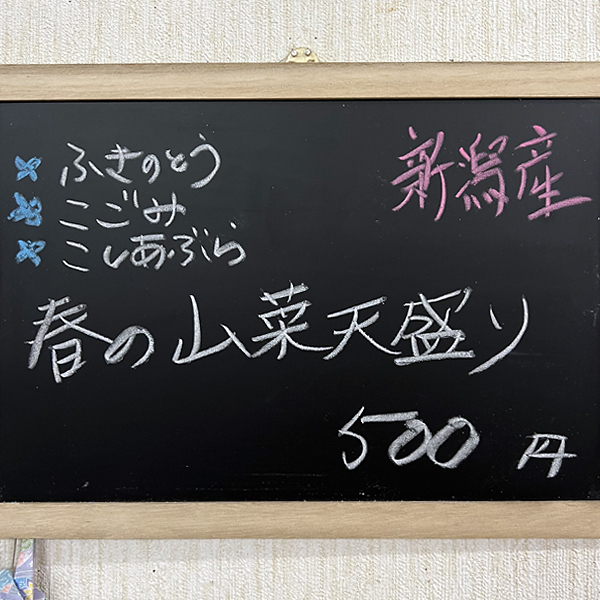 新潟産
ふきのとう
こごみ
こしあぶら
春の山菜天盛り
500円